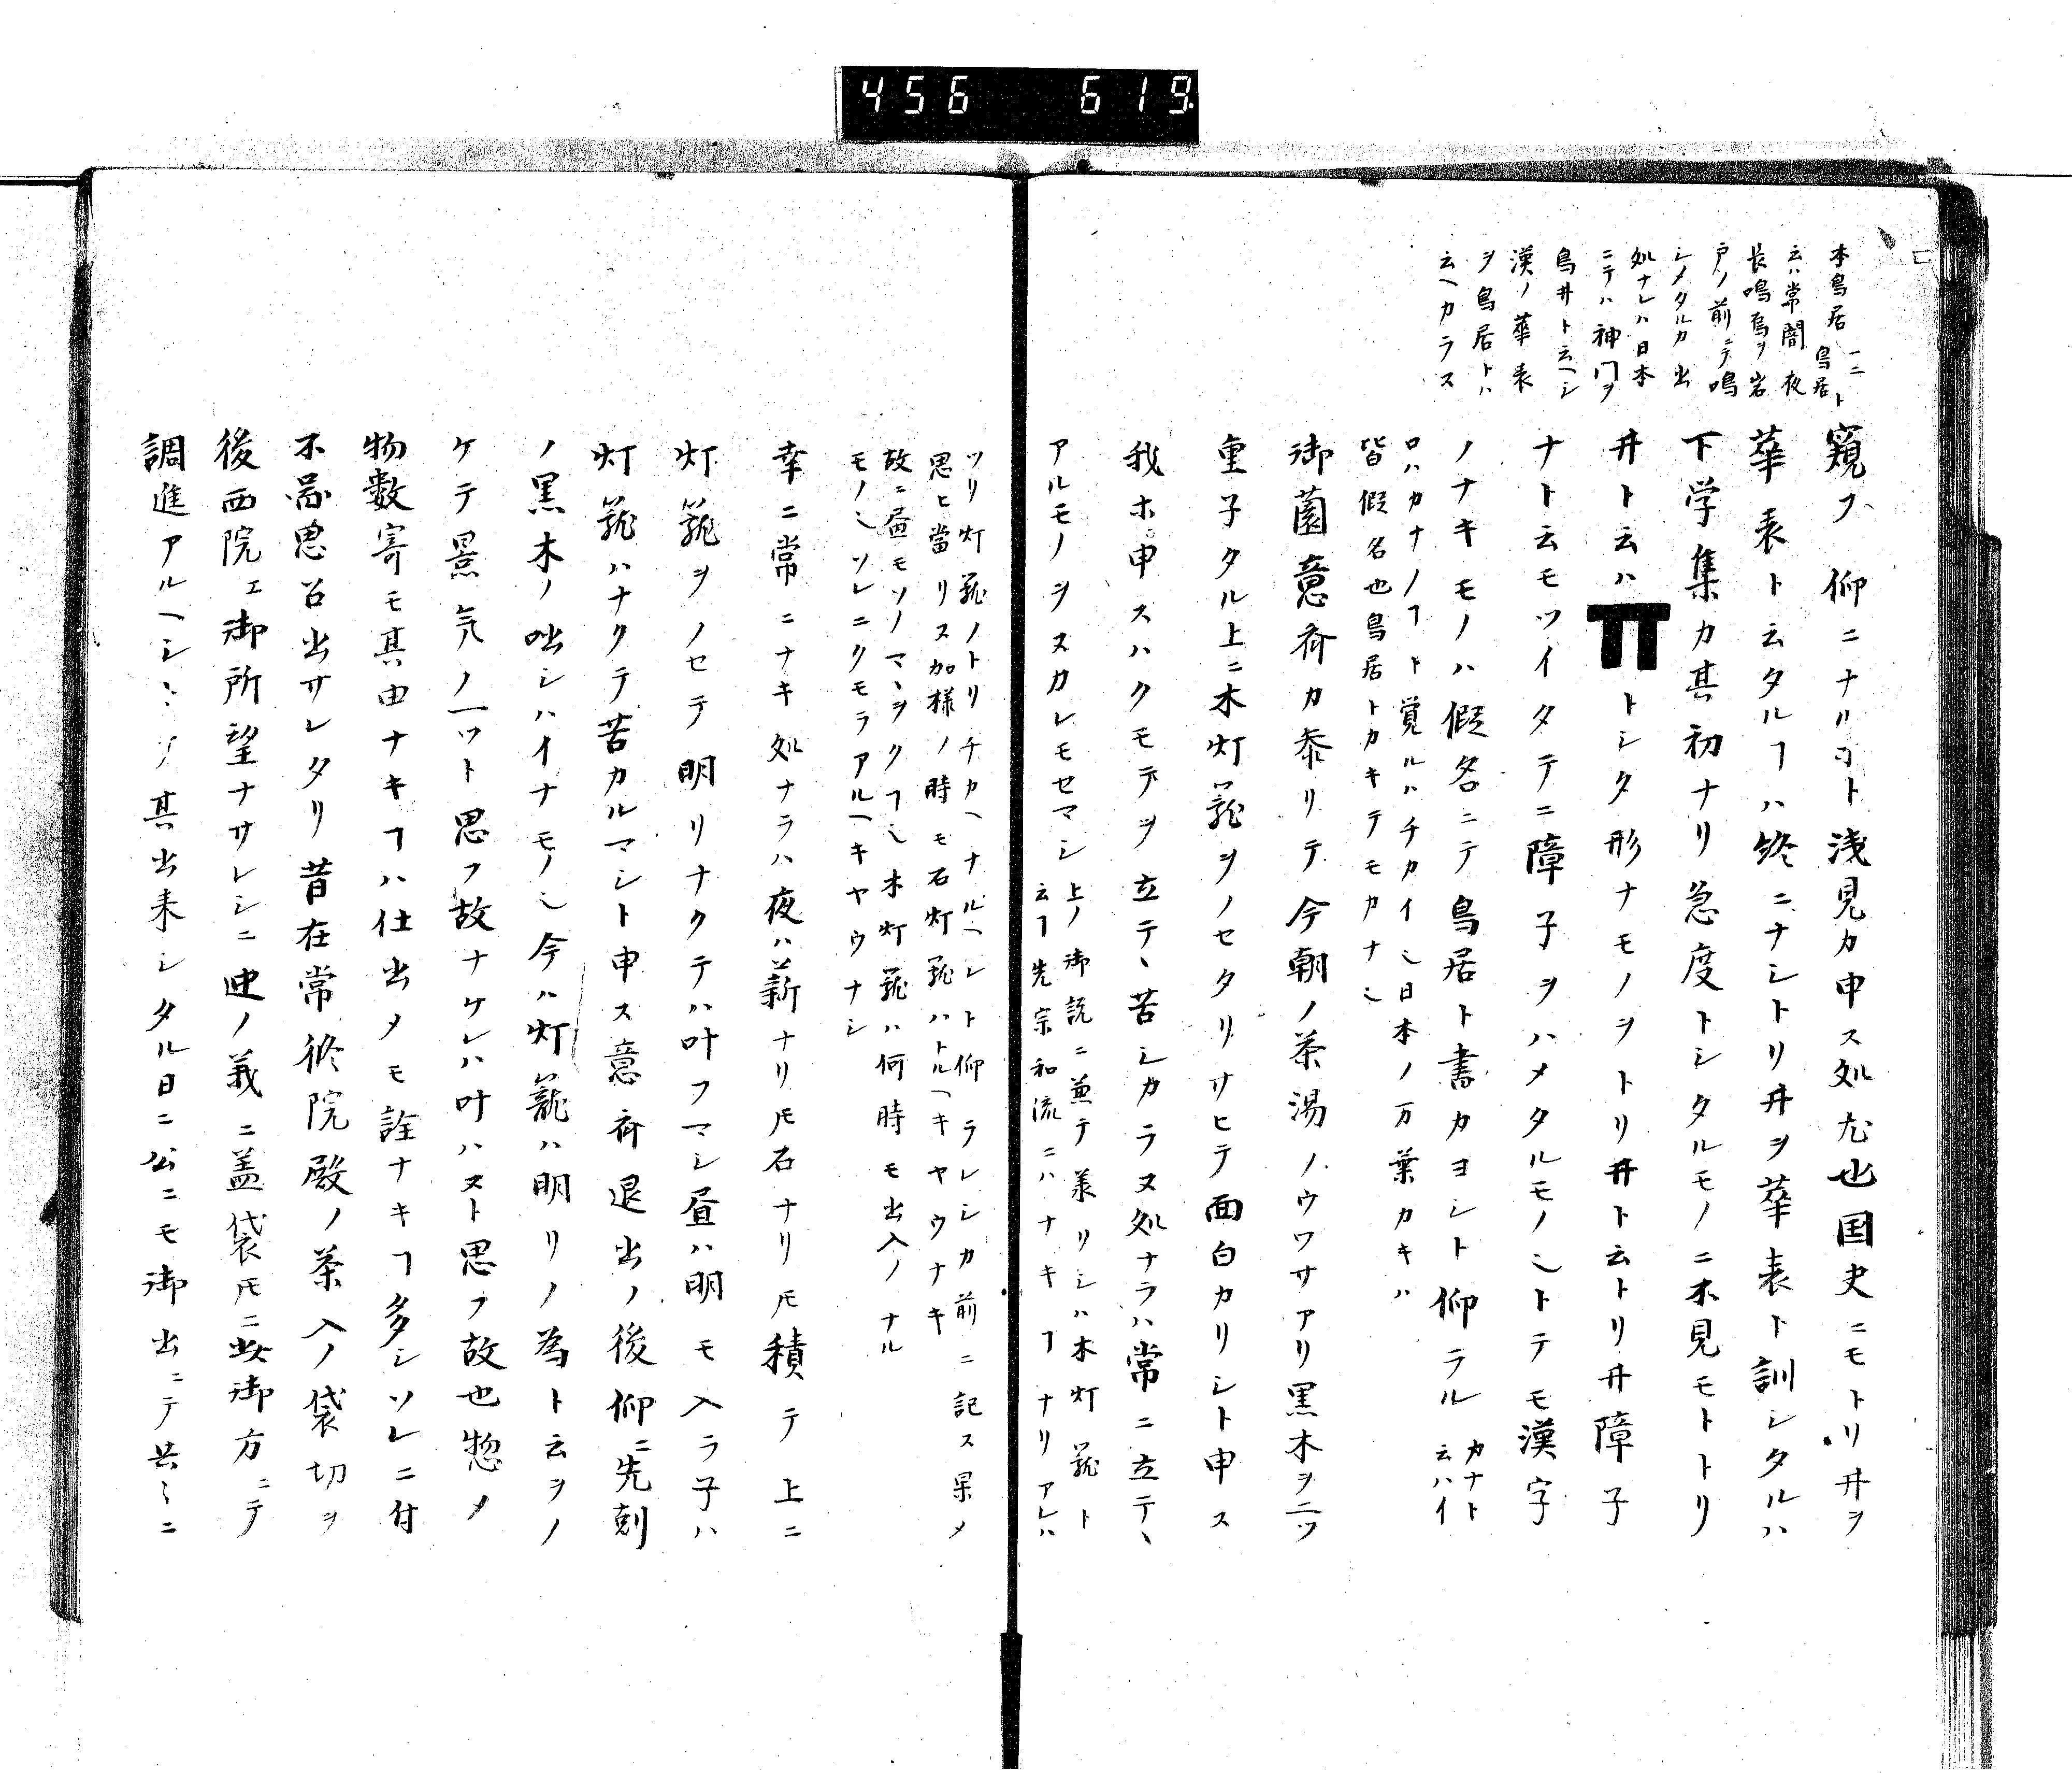 456 619.
本鳥居 一ニ鳥居ト
云ハ常闇夜
長鳴鳥ヲ岩
戸ノ前ニテ鳴
シメタルカ出
処ナレハ日本
ニテハ神門ヲ
鳥井ト云ヘシ
漢ノ華表
ヲ鳥居トハ
云ヘカラス
窺フ、仰ニナルヿト浅見カ申ス処尤也国史ニモトリ井ヲ
華表ト云タルヿハ終ニナシトリ井ヲ華表ト訓シタルハ
下学集カ其初ナリ急度トシタルモノニ不見モトトリ
井ト云ハ トシタ形ナモノヲトリ井ト云トリ井障子
ナト云モツイタテニ障子ヲハメタルモノ也トテモ漢字
ノナキモノハ假名ニテ鳥居ト書カヨシト仰ラル カナト云ハイ
ロハカナノヿト覚ルハチカイ也日本ノ万葉カキハ
皆假名也鳥居トカキテモカナ也
御薗意斎カ参リテ今朝ノ茶湯ノウワサアリ黒木ヲ二ツ
重子タル上ニ木灯籠ヲノセタリサヒテ面白カリシト申ス
我ホ申スハクモデヲ立テヽ苦シカラヌ処ナラハ常ニ立テヽ
アルモノヲヌカレモセマシ 上ノ御説ニ兼テ義リシハ木灯籠ト
云ヿ先宗和流ニハナキヿナリアレハ
ツリ灯籠ノトリチカヘナルヘシト仰ラレシカ前ニ記ス果メ
思ヒ當リヌ加様ノ時モ石灯籠ハトルヘキヤウナキ
故ニ昼モソノマヽヲクヿ也木灯籠ハ何時モ出入ノナル
モノ也ソレニクモラアルヘキヤウナシ
幸ニ常ニナキ処ナラハ夜ハ薪ナリ𪜈石ナリ𪜈積テ上ニ
灯籠ヲノセテ明リナクテハ叶フマシ昼ハ明モ入ラ子ハ
灯籠ハナクテ苦カルマシト申ス意斎退出ノ後仰ニ先刻
ノ黒木ノ咄シハイナモノ也今ハ灯籠ハ明リノ為ト云ヲノ
ケテ景気ノ一ツト思フ故ナケレハ叶ハヌト思フ故也惣メ
物数寄モ其由ナキヿハ仕出メモ詮ナキヿ多シソレニ付
不図思召出サレタリ昔在常修院殿ノ茶入ノ袋切ヲ
後西院エ御所望ナサレシニ迚ノ義ニ盖袋𪜈ニ此御方ニテ
調進アルヘシヽヽ其出来シタル日ニ公ニモ御出ニテ共〻ニ